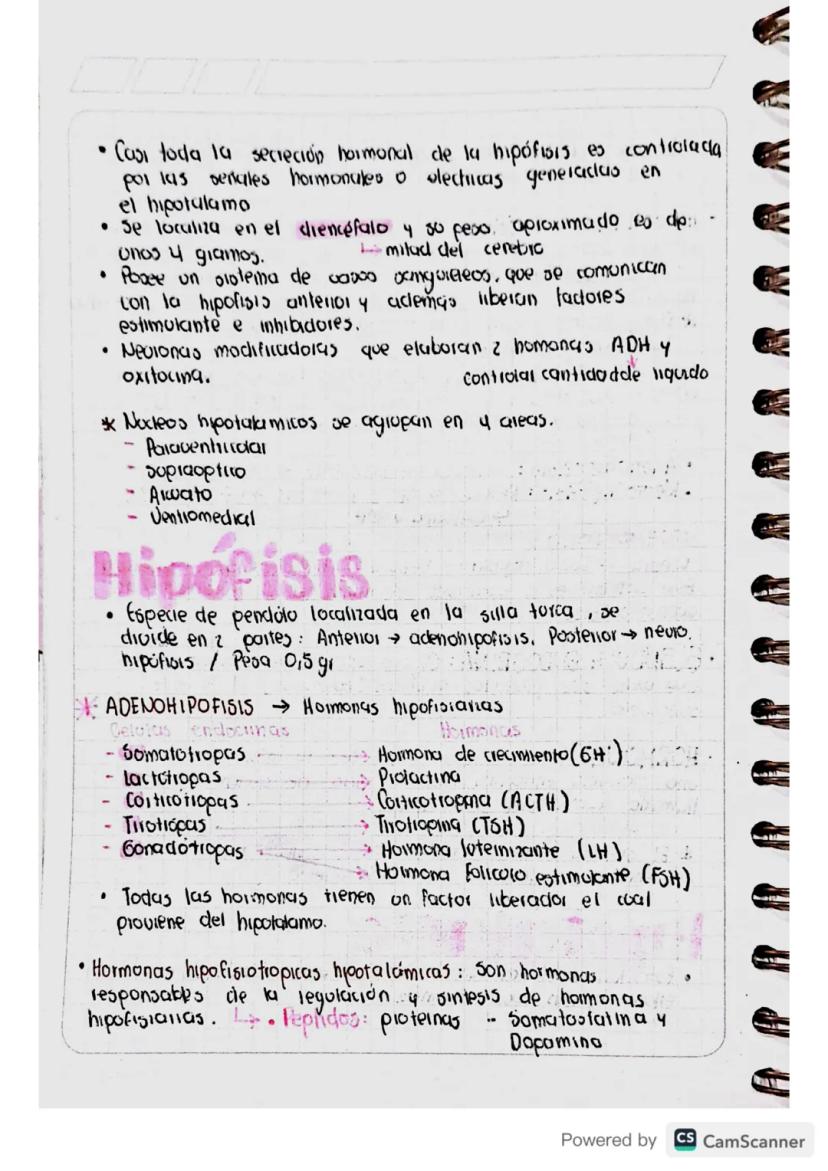 • Casi toda la secreción hormonal de la hipófisis es controlada
por las señales hormonales o electricas generadas en
el hipotalamo
• Se localiza en el diencéfalo y su peso aproximado es de
unos 4 gramos. ↳ mitad del cerebro
• Posee un sistema de vasos sanguineos, que se comunican
con la hipofisis anterior y además liberan factores
estimulante e inhibidores.
• Neuronas modificadoras que elaboran 2 hormonas ADH y
oxitocina. controlar cantidad de liquido
* Nucleos hipotalamicos se agrupan en 4 areas.
- Paraventricular
- supraoptico
- Arcuato
- Ventromedial
Hipófisis
• Especie de pendólo localizada en la silla turca, se
divide en 2 partes: Anterior → adenohipofisis. Posterior → neuro.
hipófisis / Pesa 0,5 gr
* ADENOHIPOFISIS → Hormonas hipofisiarias
Celulas endocrinas Hormonas
- Somatotropas → Hormona de crecimiento (GH)
- Lactótropas → Prolactina
- Corticotropas → Corticotropina (ACTH)
- Tirotrópas → Tirotropina (TSH)
- Gonadótropas → Hormona luteinizante (LH)
→ Hormona folículo estimulante (FSH)
• Todas las hormonas tienen un factor liberador el cual
proviene del hipotalamo.
• Hormonas hipofisiotropicas hipotalámicas: Son hormonas
responsables de la regulación y sintesis de hormonas
hipofisiarias. ↳ • Peptidos: proteinas - Somatostatina y
Dopamina
Powered by CS CamScanner